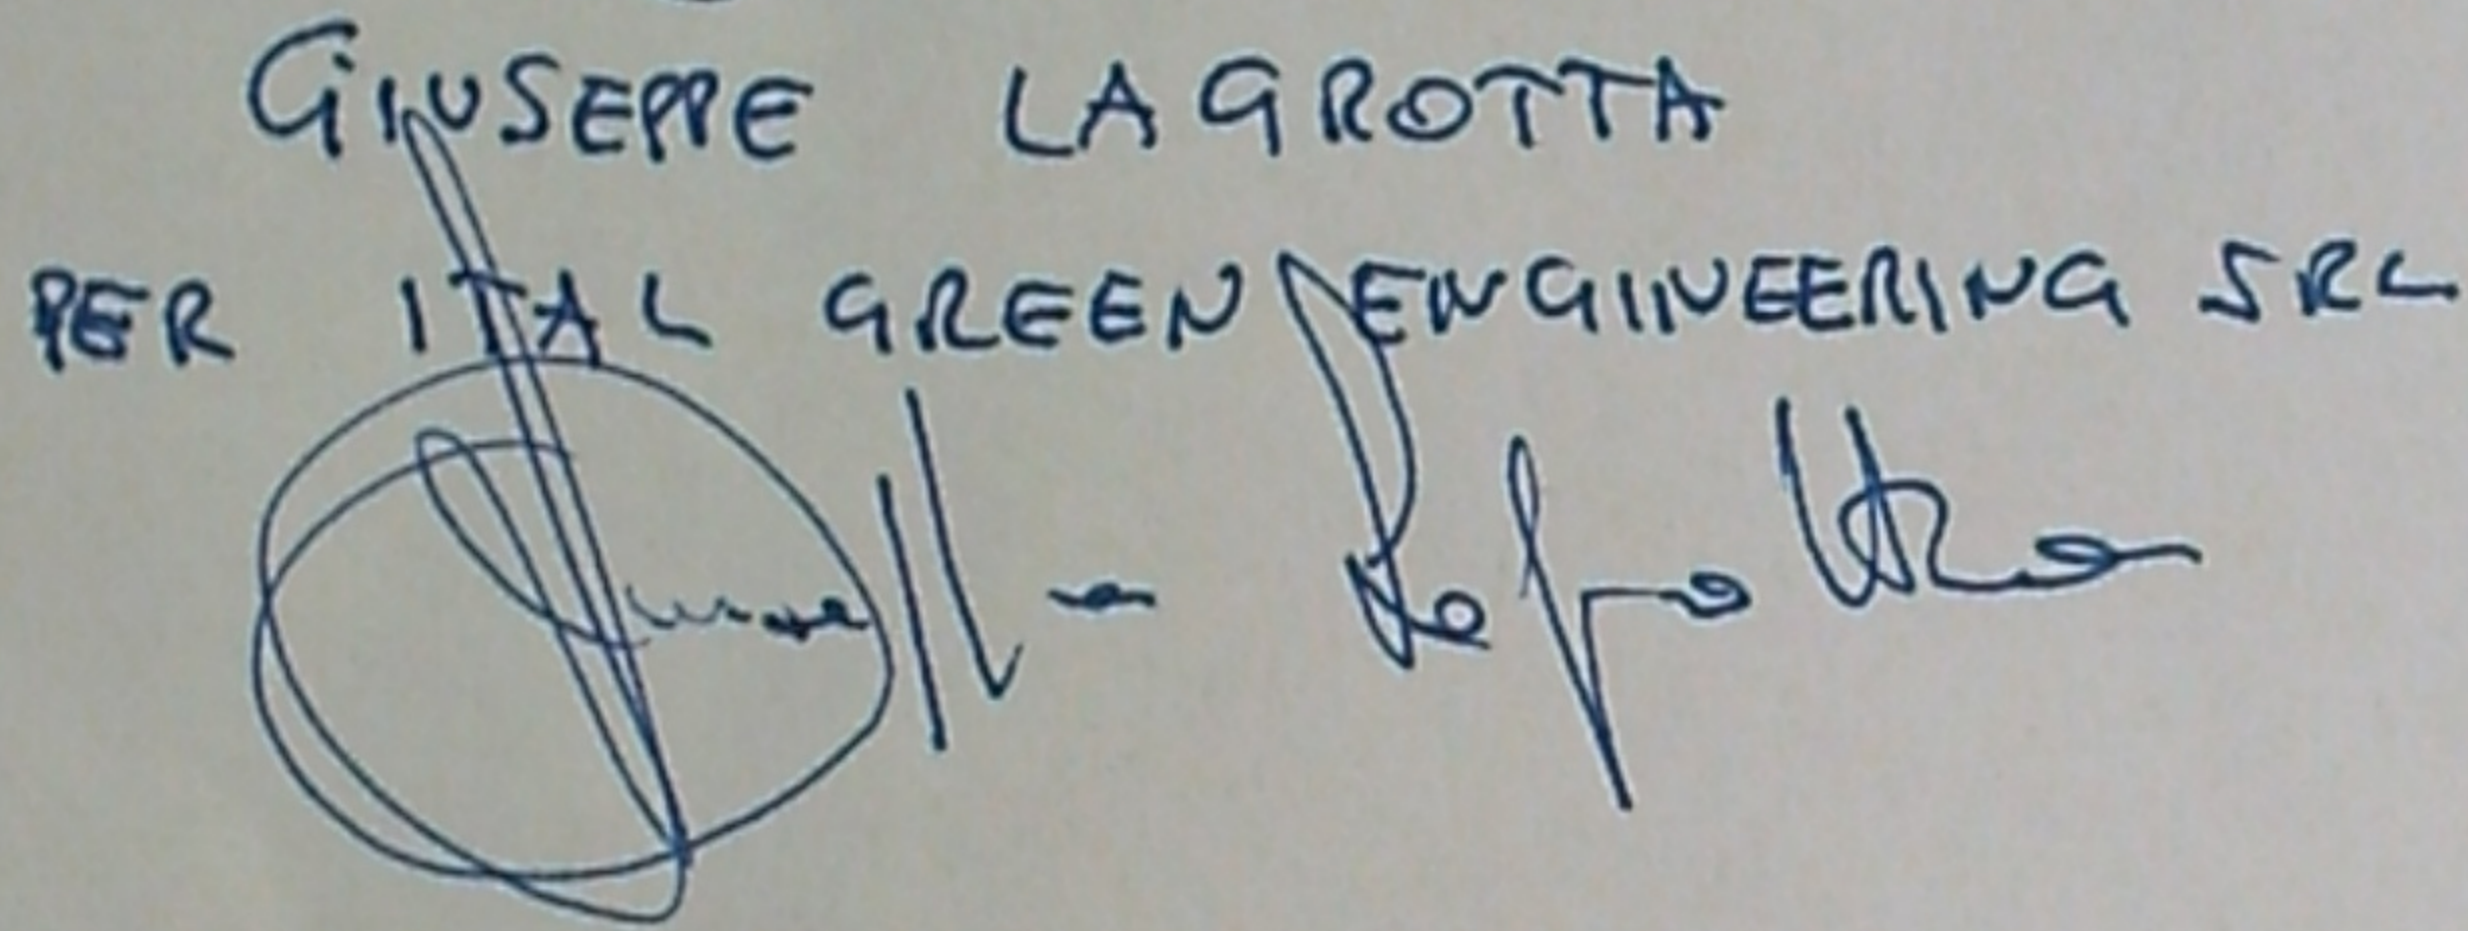 GIUSEPPE LAGROTTA
PER ITAL GREEN ENGINEERING SRL